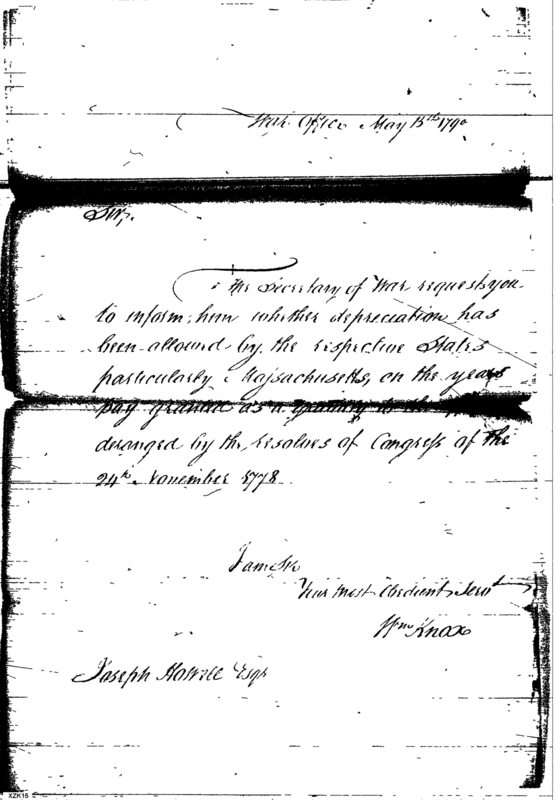 War Office May 13th 1790
Sir,
The Secretary of War requests you
to inform him whether depreciation has
been allowed by the respective States
particularly Massachusetts, on the years
pay granted as a gratuity to the
deranged by the resolves of Congress of the
24th November 1778
I am Sir
Your most Obedient Servt
Wm Knox
Joseph Howell Esqr
XZK15